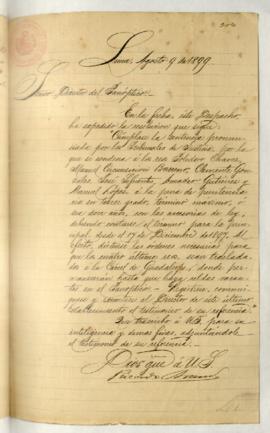 Lima, Agosto 9 de 1899
Señor Director del Panóptico.
En la fecha, este Despacho
ha expedido la resolución que sigue:
"Cúmplase la sentencia pronun-
ciada por los Tribunales de Justicia, por la
que se condena á la rea Soledad Chavez,
Manuel Clemente
José Amador Gutierrez y
Manuel López á la pena de penitencia-
ria en tercer grado, término máximo, ó
sea doce años, con las accesorias de ley,
debiendo contarse el término para la prin-
cipal desde el 17 de Diciembre de 1897. Al
efecto, díctense las órdenes necesarias para
que los cuatro últimos sean traslada-
dos á la Carcel de Guadalupe, donde per-
manecerán hasta que haya celdas vacan-
tes en el Panóptico. Regístrese, comuní-
quese y remítase al Director de este último
Establecimiento el testimonio de su referencia."
Que trascribo á US. para su
inteligencia y demas fines, adjuntándole
el testimonio de su referencia.
Dios gue. á US.